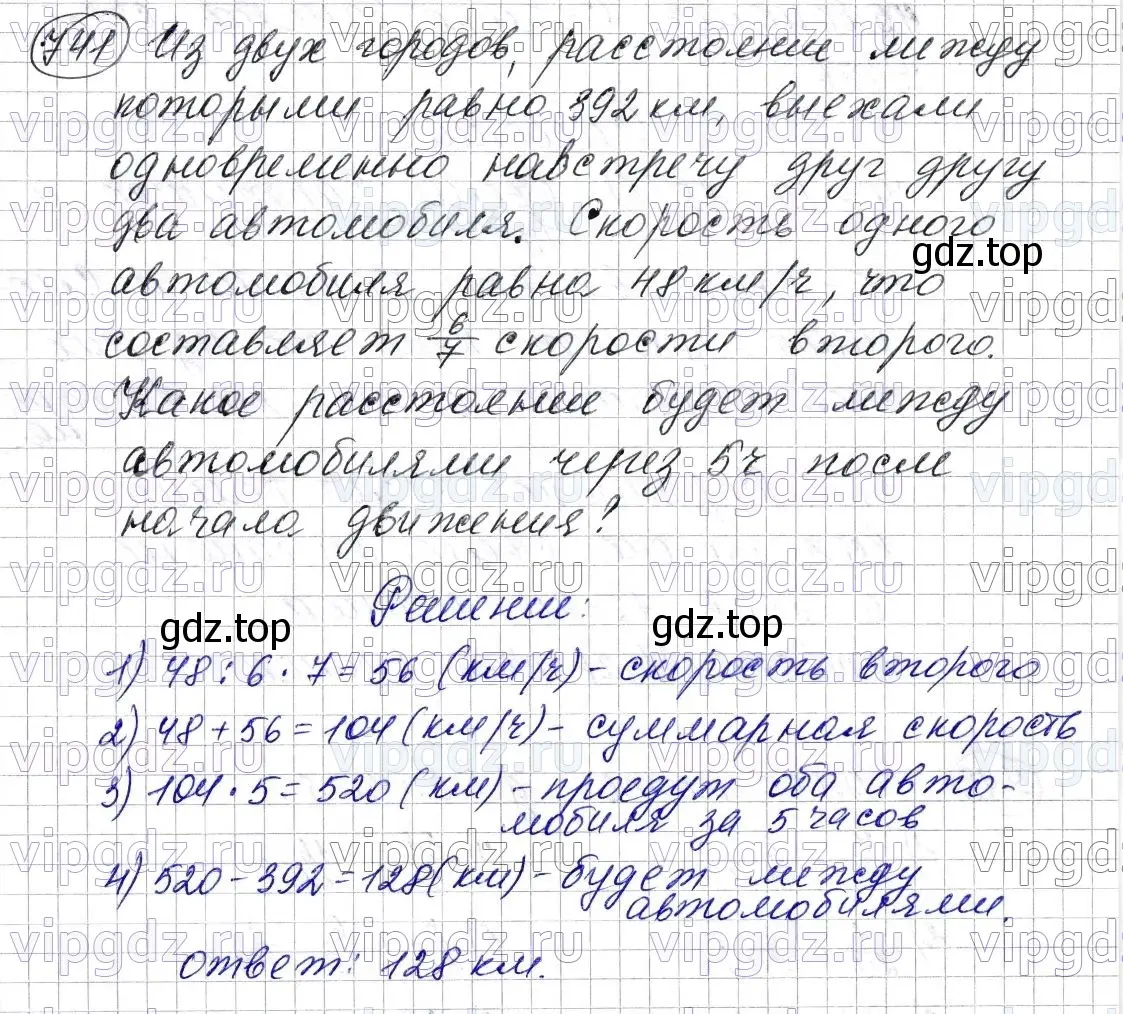 741 Из двух городов, расстояние между
которыми равно 392 км, выехали
одновременно навстречу друг другу
два автомобиля. Скорость одного
gdz.top
автомобиля равна 48 км/ч, что
составляет 6/7 скорости второго.
Какое расстояние будет между
автомобилями через 5ч после
начала движения?
Решение:
gdz.top gdz.top
1) 48 : 6 · 7 = 56 (км/ч) - скорость второго
2) 48 + 56 = 104 (км/ч) - суммарная скорость
3) 104 · 5 = 520 (км) - проедут оба авто-
мобиля за 5 часов
4) 520 - 392 = 128 (км) - будет между
автомобилями.
ответ: 128 км.
vipgdz.ru